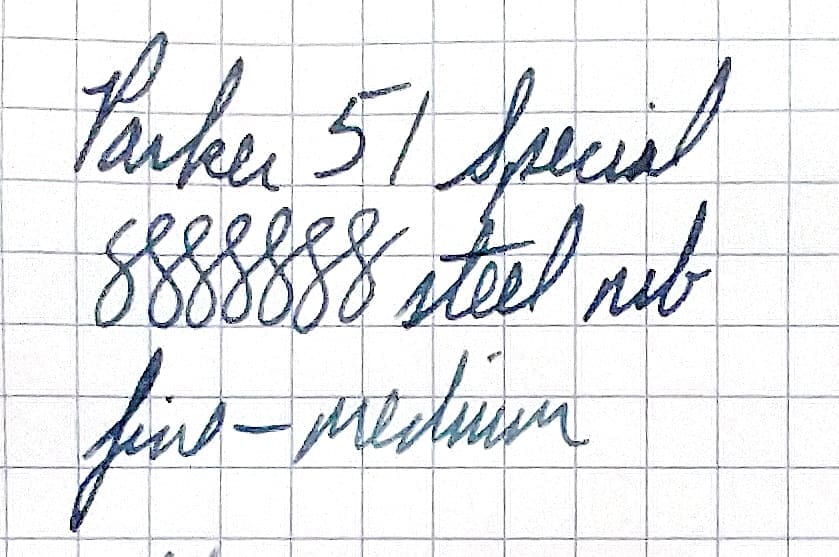 Parker 51 Special
8888888 steel nib
fine - medium